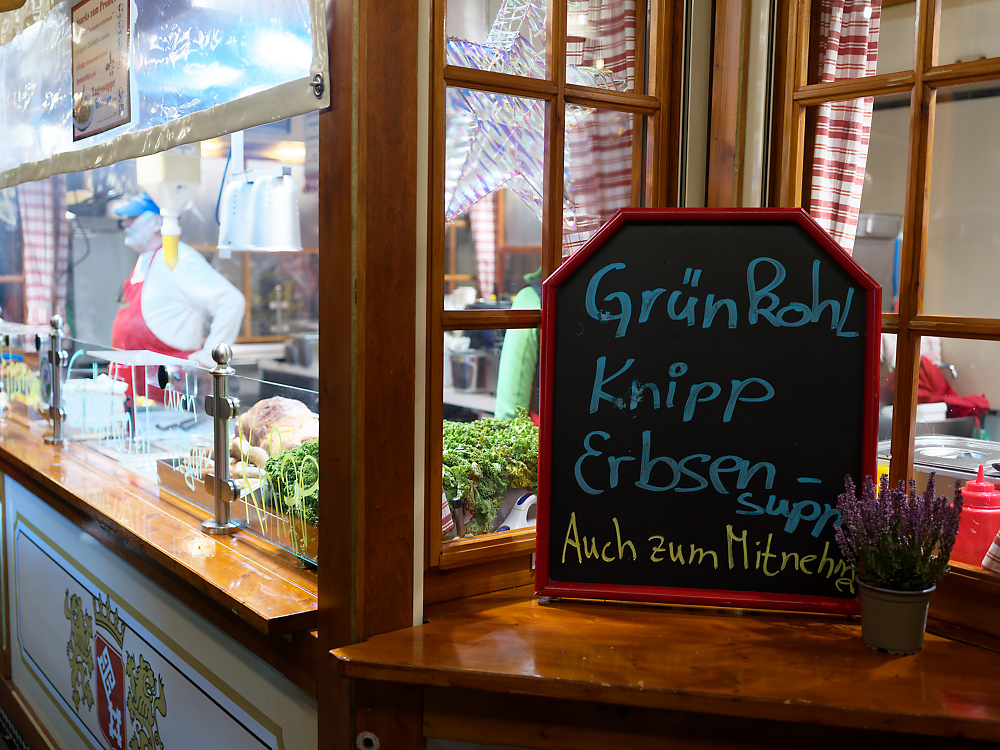 Grünkohl
Knipp
Erbsen-
supp
Auch zum Mitnehm